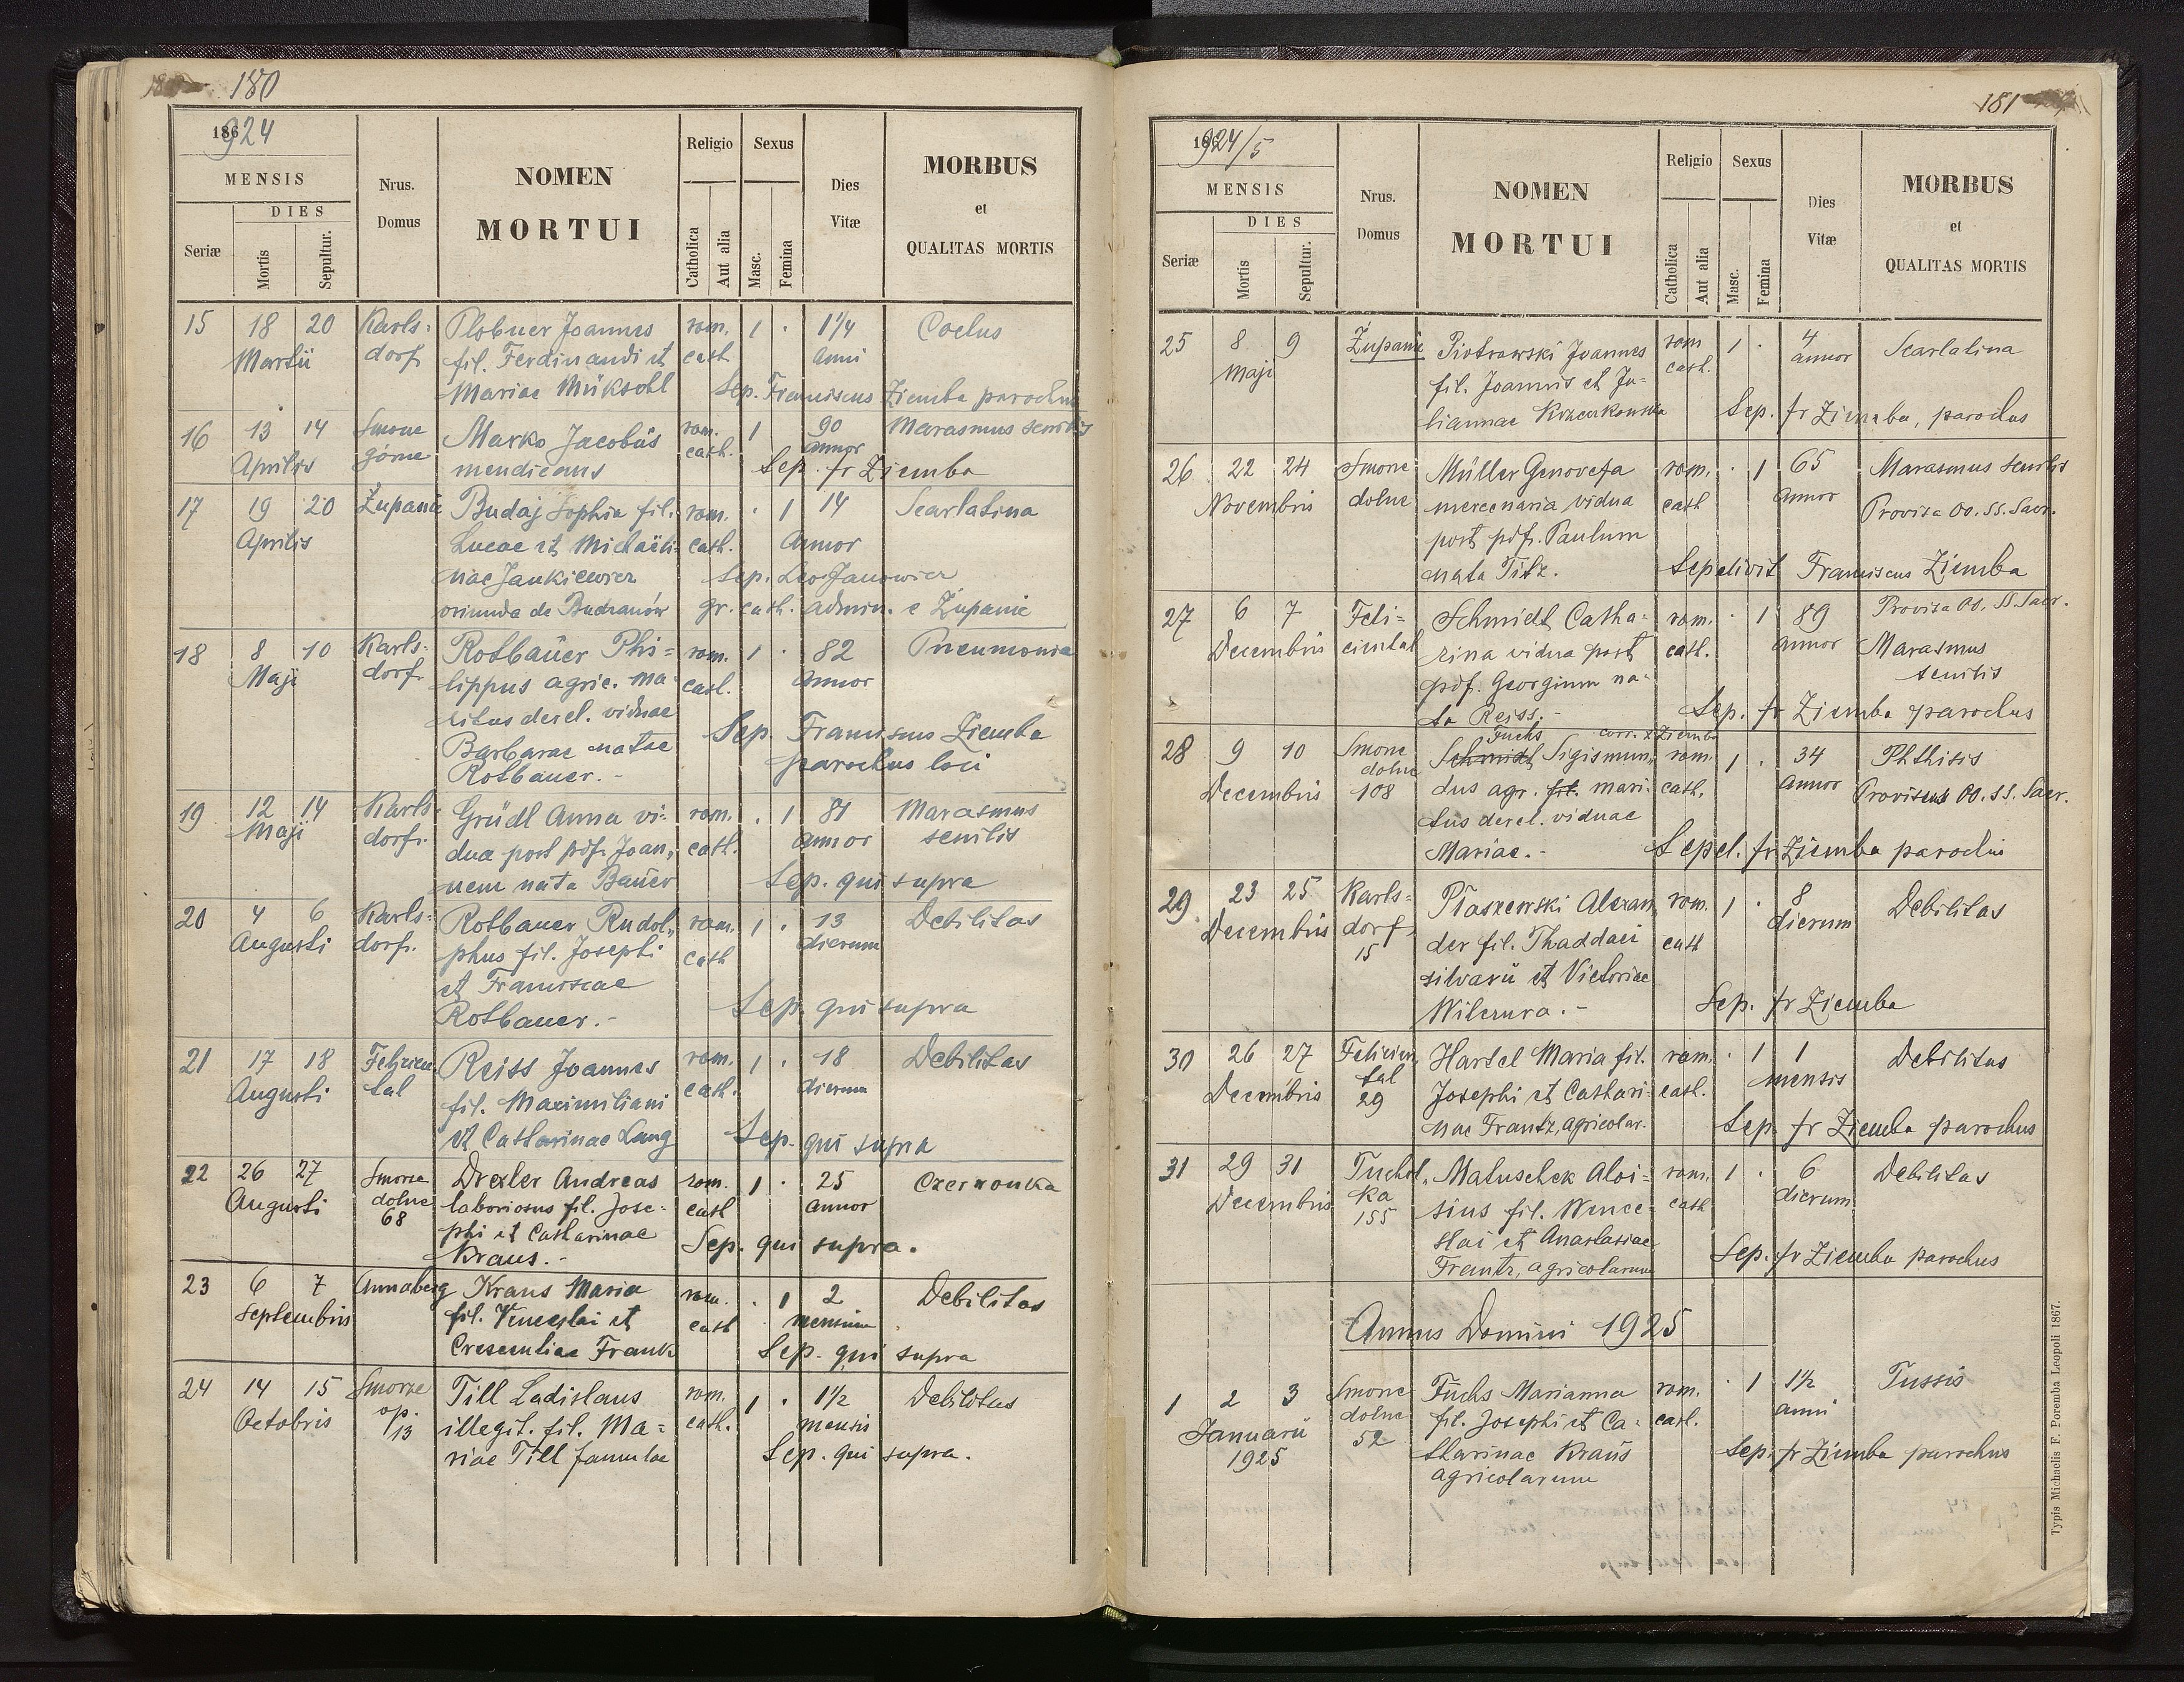 180
1924
MENSIS
DIES
Seriæ
Mortis
Sepultur.
Nrus. Domus
NOMEN
MORTUI
Religio
Catholica
Aut alia
Sexus
Masc.
Femina
Dies Vitæ
MORBUS
et
QUALITAS MORTIS
15 18 20 Karls= Plobner Joannes rom. 1 · 1 1/4 Coelus
Martii dorf fil. Ferdinandi et cath anni
Mariae Müksohl Sep. Franciscus Ziemba parochus
16 13 14 Smorze Marko Jacobus rom. 1 90 Marasmus senilis
Aprilis górne mendicans cath. annor Sep. fr Ziemba
17 19 20 Żupanie Budaj Sophia fil. rom. · 1 14 Scarlatina
Aprilis Lucae et Michaëli= cath. Annor
nae Jankiewicz Sep. Leo Janowicz
oriunda de Budzanów gr. cath. admin. e Żupanie
18 8 10 Karls= Rotbauer Phi= rom. 1 · 82 Pneumonia
Maji dorf. lippus agric. ma= cath. annor
ritus derel. viduae
Barbarae natae Sep. Franciscus Ziemba
Rotbauer.- parochus loci
19 12 14 Karls= Gründl Anna vi= rom. · 1 81 Marasmus
Maji dorf. dua post pdf. Joan= cath. annor senilis
nem nata Bauer Sep. qui supra
20 4 6 Karls= Rotbauer Rudol= rom. 1 · 13 Debilitas
Augusti dorf. phus fil. Josephi cath dierum
et Franciscae
Rotbauer.- Sep. qui supra
21 17 18 Felizien Reiss Joannes rom. 1 · 18 Debilitas
Augusti tal fil. Maximiliani cath. dierum
et Catharinae Lang Sep. qui supra
22 26 27 Smorze Drexler Andreas rom. 1 · 25 Czerwonka
Augusti dolne laboriosus fil. Jose= cath annor
68 phi et Catharinae
Kraus.- Sep. qui supra.
23 6 7 Annaberg Kraus Maria rom. · 1 2 Debilitas
Septembris fil. Venceslai et cath mensium
Crescentiae Frank Sep. qui supra
24 14 15 Smorze Till Ladislaus rom. 1 · 1 1/2 Debilitas
Octobris op. 13 illegit. fil. Ma= cath. mensis
riae Till famulae Sep. qui supra.
181
1924/5
MENSIS
DIES
Seriæ
Mortis
Sepultur.
Nrus. Domus
NOMEN
MORTUI
Religio
Catholica
Aut alia
Sexus
Masc.
Femina
Dies Vitæ
MORBUS
et
QUALITAS MORTIS
25 8 9 Żupanie Piotrowski Joannes rom 1 · 4 Scarlatina
Maji fil. Joannis et Ju= cath. annor
liannae Sep. fr Ziemba, parochus
26 22 24 Smorze Müller Genovefa rom. · 1 65 Marasmus senilis
Novembris dolne mercenaria vidua cath annor Provisa OO. SS. Sacr.
post pdf. Paulum
nata Titz. Sepelivit Franciscus Ziemba
27 6 7 Feli= Schmidt Catha= rom. · 1 89 Provisa OO. SS. Sacr.
Decembris ciental rina vidua post cath. annor Marasmus
pdf. Georgium na= senilis
ta Reiss.- Sep. fr Ziemba parochus
Fuchs corr. X Ziemba
28 9 10 Smorze Schmidt Sigismun= rom. 1 · 34 Phthisis
Decembris dolne 108 dus agr. fil. mari= cath. annor Provisus OO. SS. Sacr.
tus derel. viduae
Mariae.- Sepel. fr Ziemba parochus
29 23 25 Karls= Ptaszewski Alexan= rom. 1 · 8 Debilitas
Decembris dorf, der fil. Thaddaei cath dierum
15 silvarii et Victoriae
Wilczura.- Sep. fr Ziemba
30 26 27 Felicien Hartel Maria fil. rom. · 1 1 Debilitas
Decembris tal Josephi et Cathari= cath. mensis
29 nae Frantz, agricolar. Sep. fr Ziemba parochus
31 29 31 Tuchol= Matuschek Aloi= rom. 1 · 6 Debilitas
Decembris ka sius fil. Wence= cath dierum
155 slai et Anastasiae
Frantz, agricolarum Sep. fr Ziemba parochus
Annus Domini 1925
1 2 3 Smorze Fuchs Marianna rom. · 1 1 1/2 Tussis
Januarii dolne fil. Josephi et Ca= cath. anni
1925 52 tharinae Kraus Sep. fr Ziemba parochus
agricolarum
Typis Michaelis F. Poremba Leopoli 1867.